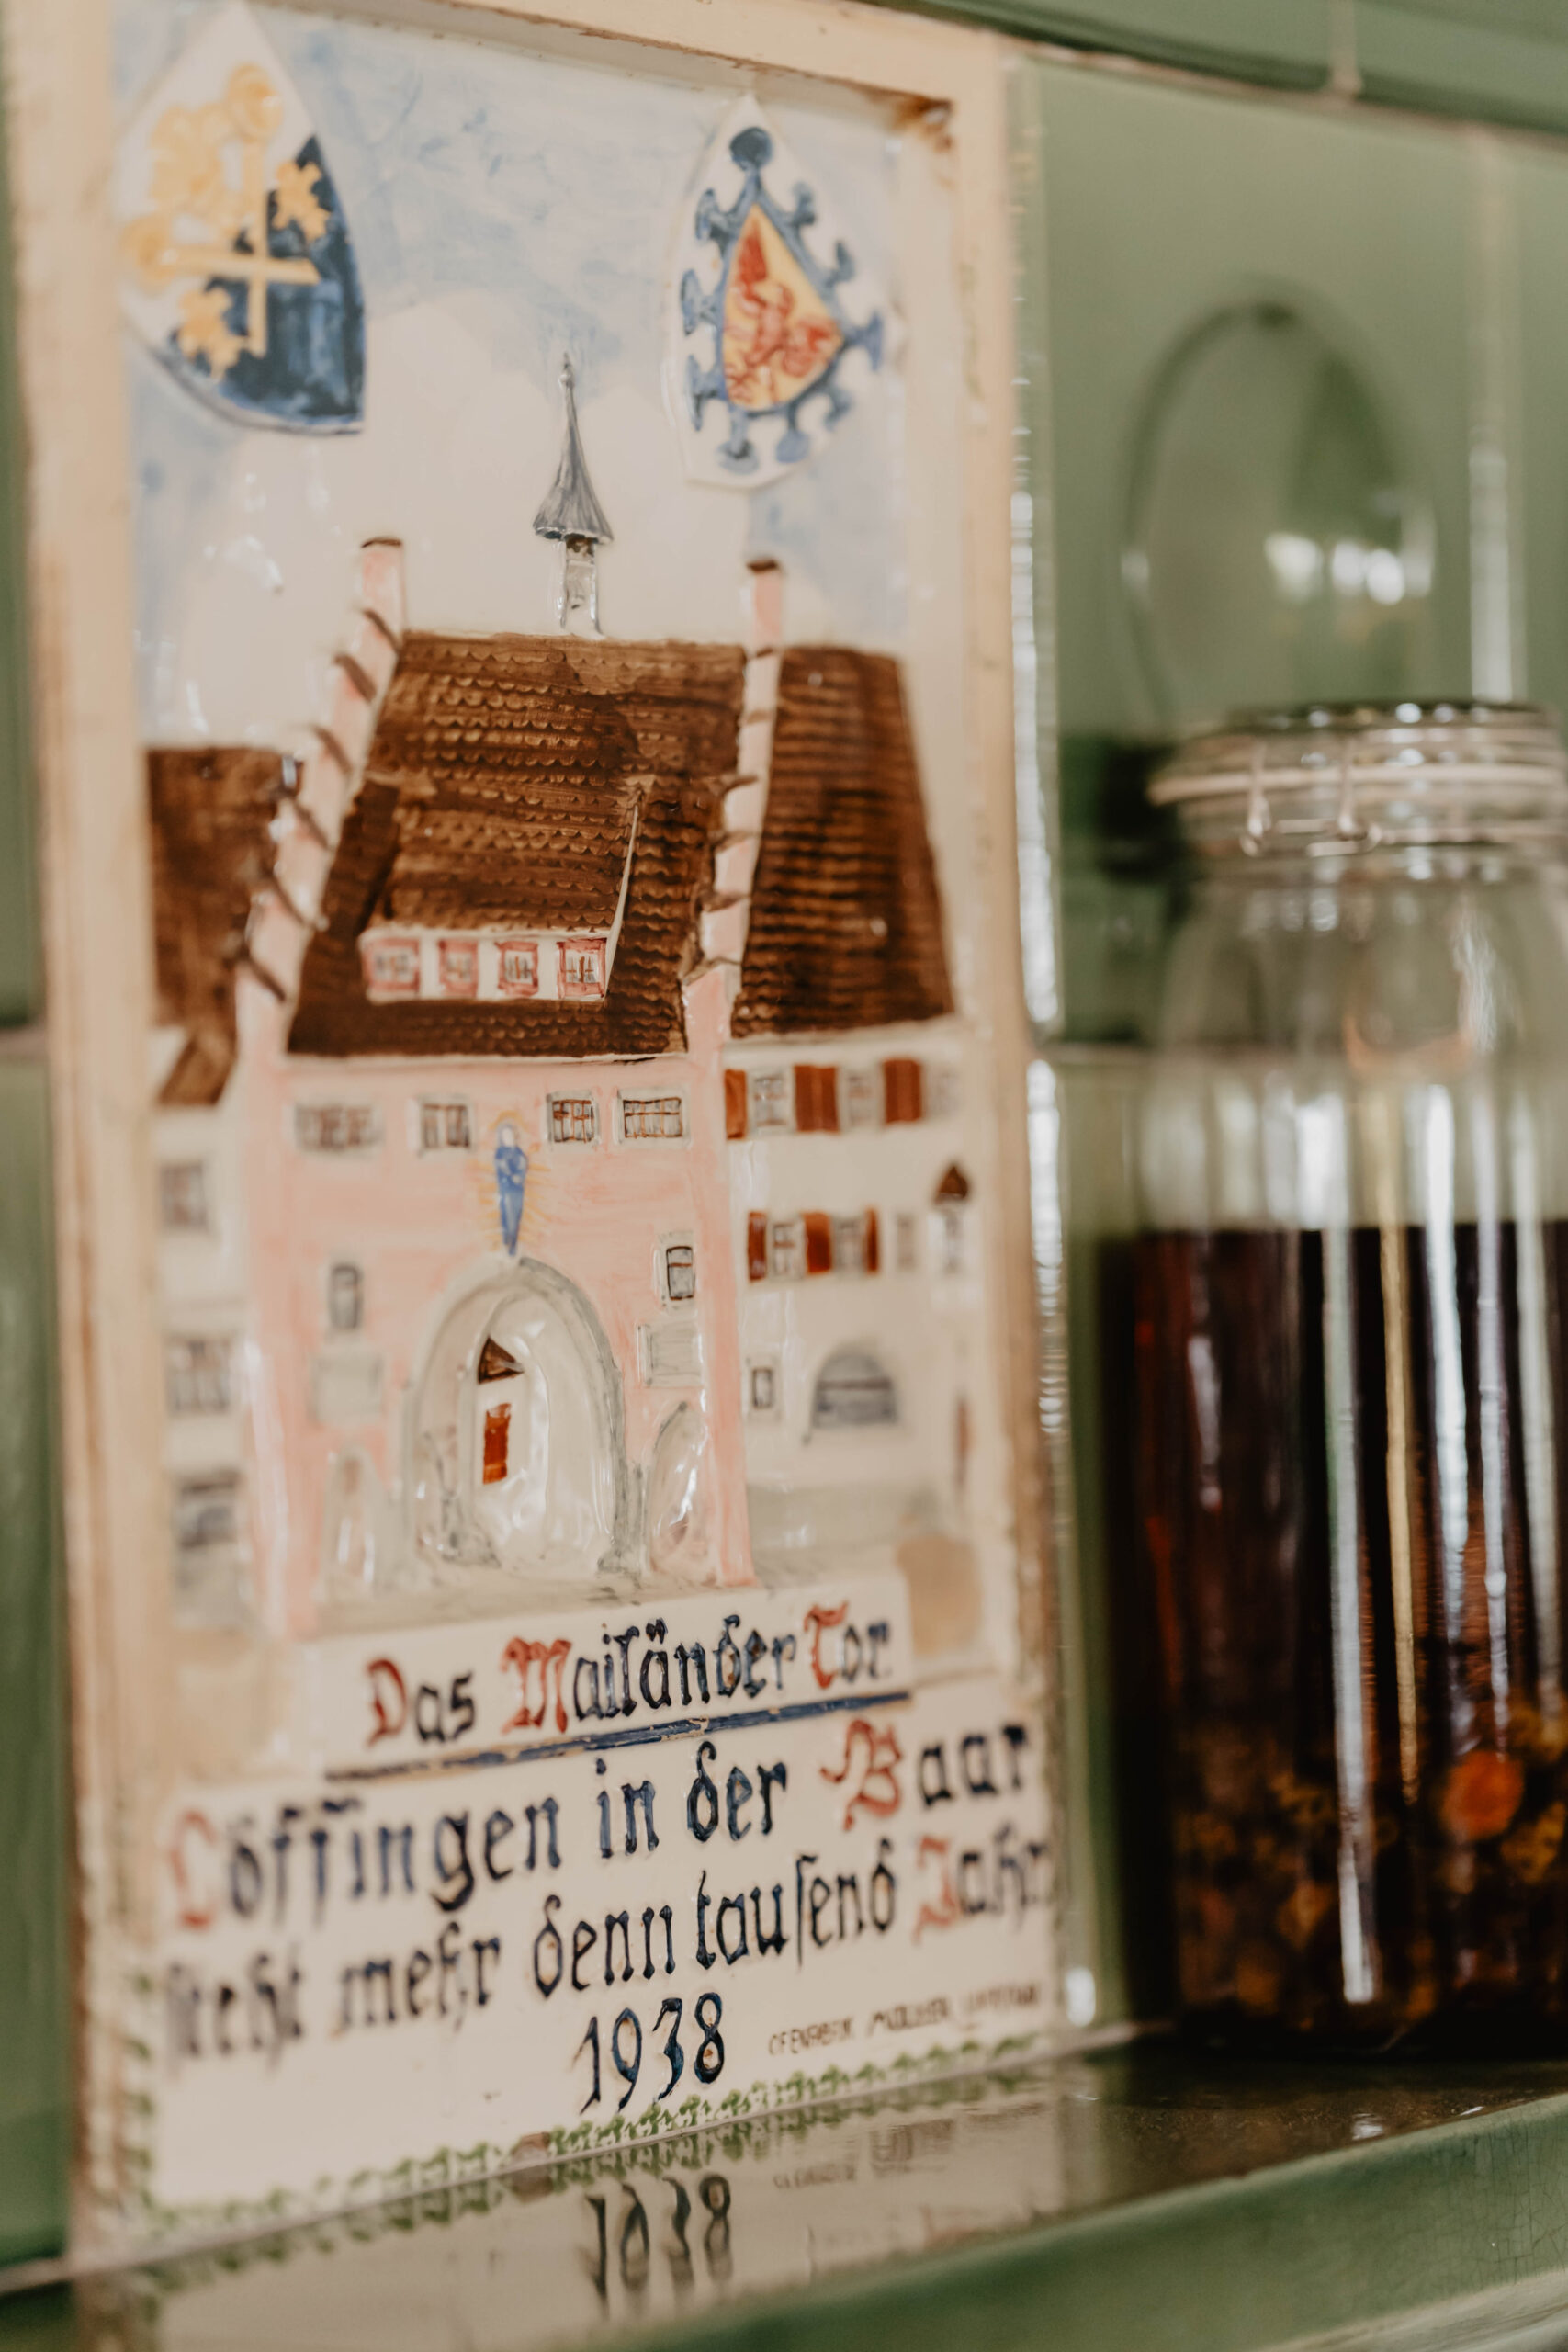 Das Mailänder Tor
Löffingen in der Baar
steht mehr denn tausend Jahr
1938